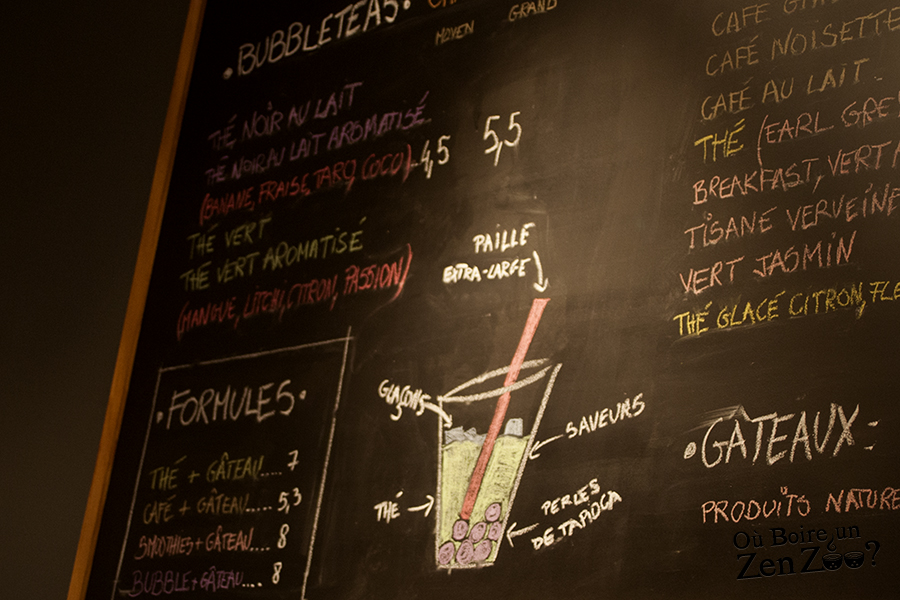 • BUBBLETEAS •
MOYEN GRAND
THÉ NOIR AU LAIT
THÉ NOIR AU LAIT AROMATISÉ
(BANANE, FRAISE, TARO, COCO) 4,5 5,5
THÉ VERT
THÉ VERT AROMATISÉ
(MANGUE, LITCHI, CITRON, PASSION)
• FORMULES •
THÉ + GÂTEAU..... 7
CAFÉ + GÂTEAU..... 5,3
SMOOTHIES + GÂTEAU.... 8
BUBBLE + GÂTEAU.... 8
PAILLE
EXTRA-LARGE
GLAÇONS
SAVEURS
THÉ
PERLES
DE TAPIOCA
CAFÉ
CAFÉ NOISETTE
CAFÉ AU LAIT.
THÉ (EARL GRE
BREAKFAST, VERT
TISANE VERVEINE
VERT JASMIN
THÉ GLACÉ CITRON,
• GÂTEAUX :
PRODUITS NATURE
Où Boire un
Zen Zoo?